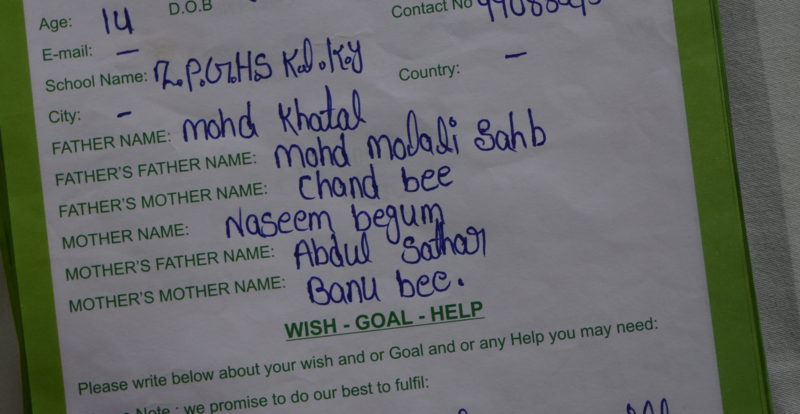 Age: 14 D.O.B Contact No
E-mail: -
School Name: Z.P.G.HS K.d.K.y Country: -
City: -
FATHER NAME: mohd Khatal
FATHER'S FATHER NAME: mohd modali Sahb
FATHER'S MOTHER NAME: Chand bee
MOTHER NAME: Naseem begum
MOTHER'S FATHER NAME: Abdul Sathar
MOTHER'S MOTHER NAME: Banu bee.
WISH - GOAL - HELP
Please write below about your wish and or Goal and or any Help you may need:
Note : we promise to do our best to fulfil: